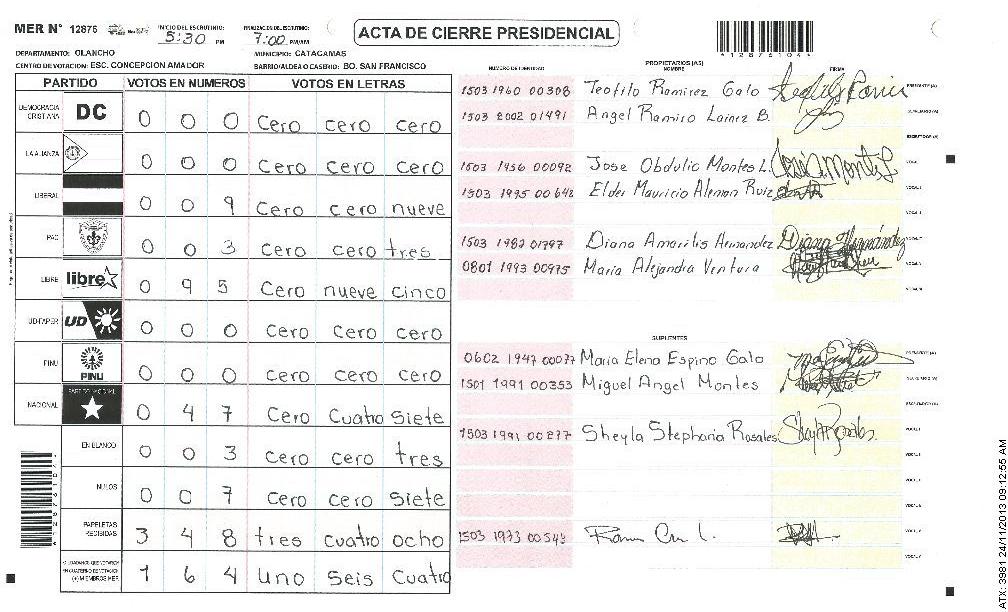 MER N° 12876 INICIO DEL ESCRUTINIO: 5:30 PM FINALIZACION DEL ESCRUTINIO: 7:00 PM/AM
ACTA DE CIERRE PRESIDENCIAL
DEPARTAMENTO: OLANCHO MUNICIPIO: CATACAMAS
CENTRO DE VOTACION: ESC. CONCEPCION AMADOR BARRIO/ALDEA O CASERIO: BO. SAN FRANCISCO
PARTIDO VOTOS EN NUMEROS VOTOS EN LETRAS
DEMOCRACIA CRISTIANA DC 0 0 0 Cero cero cero
LA ALIANZA 0 0 0 Cero Cero Cero
LIBERAL 0 0 9 Cero cero nueve
PAC 0 0 3 Cero cero tres
LIBRE libre 0 9 5 Cero nueve cinco
UD-FAPER UD 0 0 0 Cero Cero Cero
PINU PINU 0 0 0 Cero Cero Cero
NACIONAL PARTIDO NACIONAL 0 4 7 Cero Cuatro Siete
EN BLANCO 0 0 3 Cero Cero tres
NULOS 0 0 7 Cero cero Siete
PAPELETAS RECIBIDAS 3 4 8 tres cuatro ocho
CIUDADANOS QUE VOTARON EN CUADERNO DE VOTACION (+) MIEMBROS MER 1 6 4 uno Seis Cuatro
NUMERO DE IDENTIDAD PROPIETARIOS (AS) NOMBRE FIRMA
1503 1960 00308 Teofilo Ramirez Galo PRESIDENTE (A)
1503 2002 01491 Angel Ramiro Lainez B.
1503 1956 00092 Jose Obdulio Montes L.
1503 1995 00642 Elder Mauricio Aleman Ruiz
1503 1982 01797 Diana Amarilis Hernandez Diana Hernández
0801 1993 00975 Maria Alejandra Ventura
SUPLENTES
0602 1947 00077 Maria Elena Espino Galo PRESIDENTE (A)
1501 1991 00353 Miguel Angel Montes
1503 1991 00277 Sheyla Stephania Rosales
1503 1973 00543
ATX: 3981 24/11/2013 09:12:55 AM